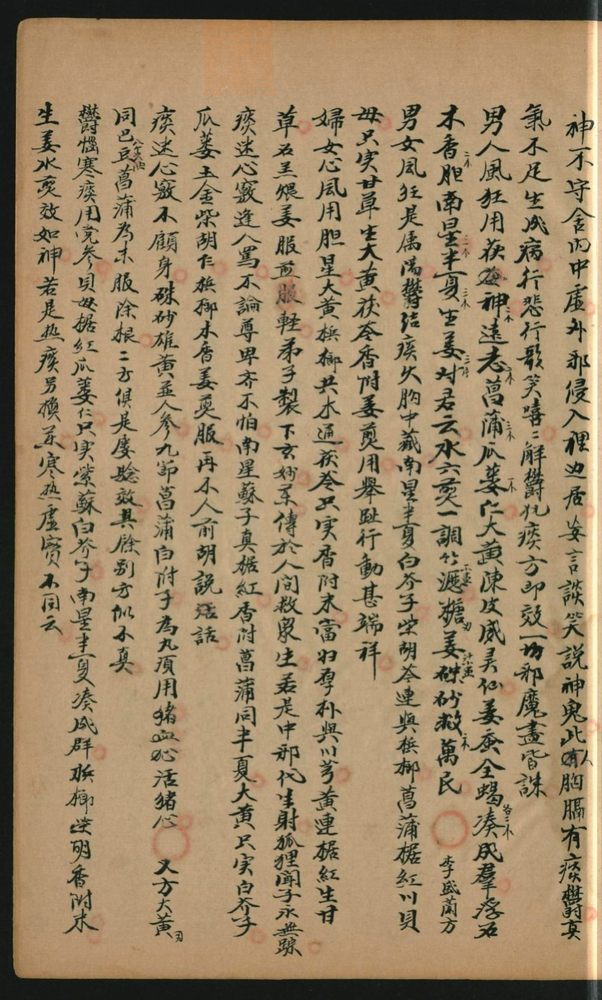 神不守舍內中虛外邪侵入裡边居妄言談笑說神鬼此人胸膈有痰鬱真
氣不足生成病行悲行歌笑嘻〻解鬱化痰方即效一切邪魔盡皆誅
男人風狂用茯神遠志菖蒲瓜蒌仁大黃陳皮威灵仙姜蚕全蝎湊成羣浮石
木香胆南星半夏生姜对君云水六煎一調竹瀝糖姜硃砂救萬民 李盛蘭方
男女風狂是属陽鬱结痰火胸中藏南星半夏白芥子柴胡芩連與梹榔菖蒲橘紅川貝
母只实甘草生大黃茯苓香附姜煎用舉趾行動甚端祥
婦女心風用胆星大黃梹榔共木通茯苓只实香附末當归厚朴與川芎黃連橘紅生甘
草名圣煨姜服煎服輕弟子製下玄妙葯傳於人間救衆生若是中邪代生射狐狸聞子永無踪
痰迷心竅逢人罵不論尊卑齐不怕南星蘇子真橘紅香附菖蒲同半夏大黃只实白芥子
瓜蒌玉金柴胡仁梹榔木香姜煎服再不人前胡說話
痰迷心竅不顧身硃砂雄黃並人參九節菖蒲白附子為丸須用猪血心活猪心 又方大黃
同巴豆菖蒲為末服涂根二方俱是屡驗效其餘别方似不真
鬱悩寒痰用党參貝母橘紅瓜蒌仁只实紫蘇白芥子南星半夏湊成群梹榔決明香附木
生姜水煎效如神若是热痰另換葯寒热虛實不同云